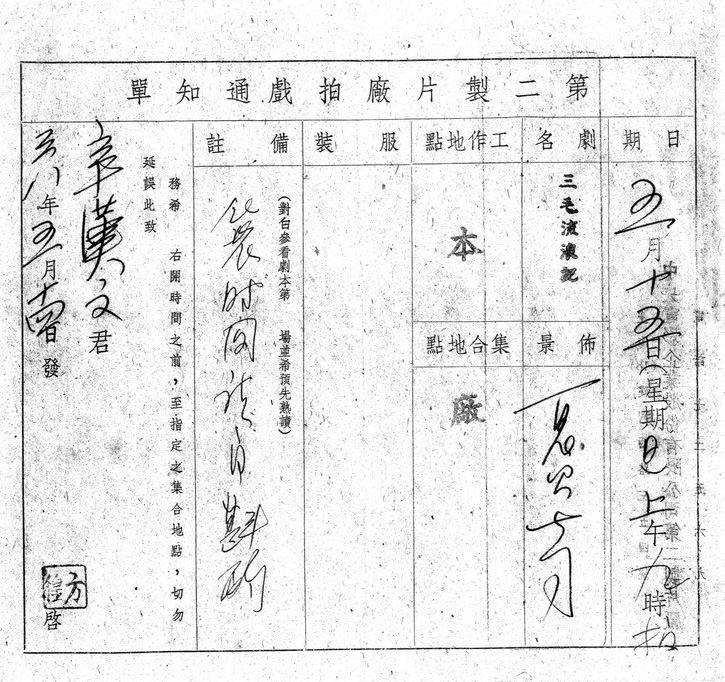 第二製片廠拍戲通知單
日期
五月十五日(星期日上午九時拍
劇名
三毛流浪記
佈景
工作地點
本
集合地點
廠
服裝
備註
(對白參看劇本第　場並希預先熟讀)
化裝時間請自斟酌
右開時間之前，至指定之集合地點，切勿
務希
延誤此致
章漢文君
年五月十四日發
方
啓